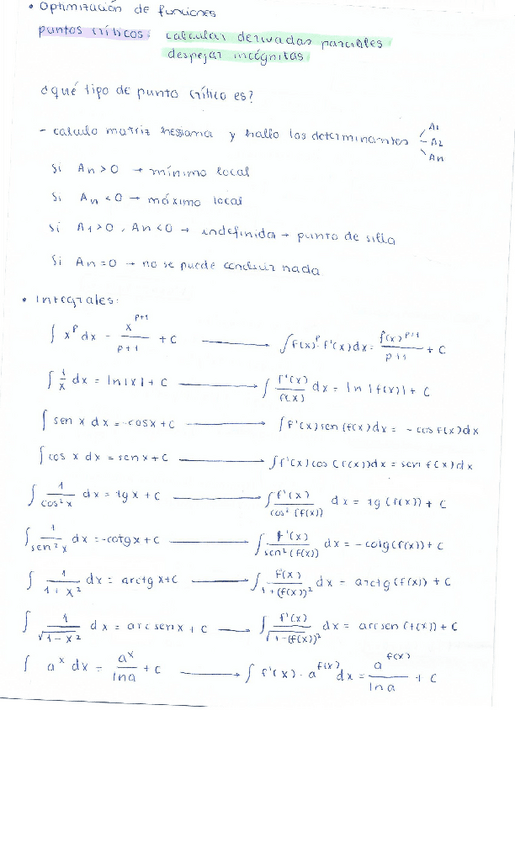 • Optimización de funciones
puntos críticos: calcular derivadas parciales
despejar incógnitas
¿qué tipo de punto crítico es?
- calculo matriz hessiana y hallo los determinantos A1 A2 An
Si An > 0 → mínimo local
Si An < 0 → máximo local
Si A1 > 0, An < 0 → indefinida → punto de silla
Si An = 0 → no se puede concluir nada
• Integrales:
∫ x^p dx = x^(p+1)/(p+1) + C ⟶ ∫ f(x)^p f'(x)dx = f(x)^(p+1)/(p+1) + C
∫ 1/x dx = ln|x| + C ⟶ ∫ f'(x)/f(x) dx = ln |f(x)| + C
∫ sen x dx = -cosx + C ⟶ ∫ f'(x) sen (f(x) dx = - cos f(x) dx
∫ cos x dx = senx + C ⟶ ∫ f'(x) cos (f(x))dx = sen f(x) dx
∫ 1/cos²x dx = tg x + C ⟶ ∫ f'(x)/cos²(f(x)) dx = tg (f(x)) + C
∫ 1/sen²x dx = -cotgx + C ⟶ ∫ f'(x)/sen²(f(x)) dx = - cotg(f(x)) + C
∫ 1/(1 + x²) dx = arctg x + C ⟶ ∫ F(x)/(1 + (f(x))²) dx = arctg (f(x)) + C
∫ 1/√(1 - x²) dx = arc senx + C ⟶ ∫ f'(x)/√(1 - (f(x))²) dx = arcsen (f(x)) + C
∫ a^x dx = a^x/ln a + C ⟶ ∫ f'(x) · a^f(x) dx = a^f(x)/ln a + C